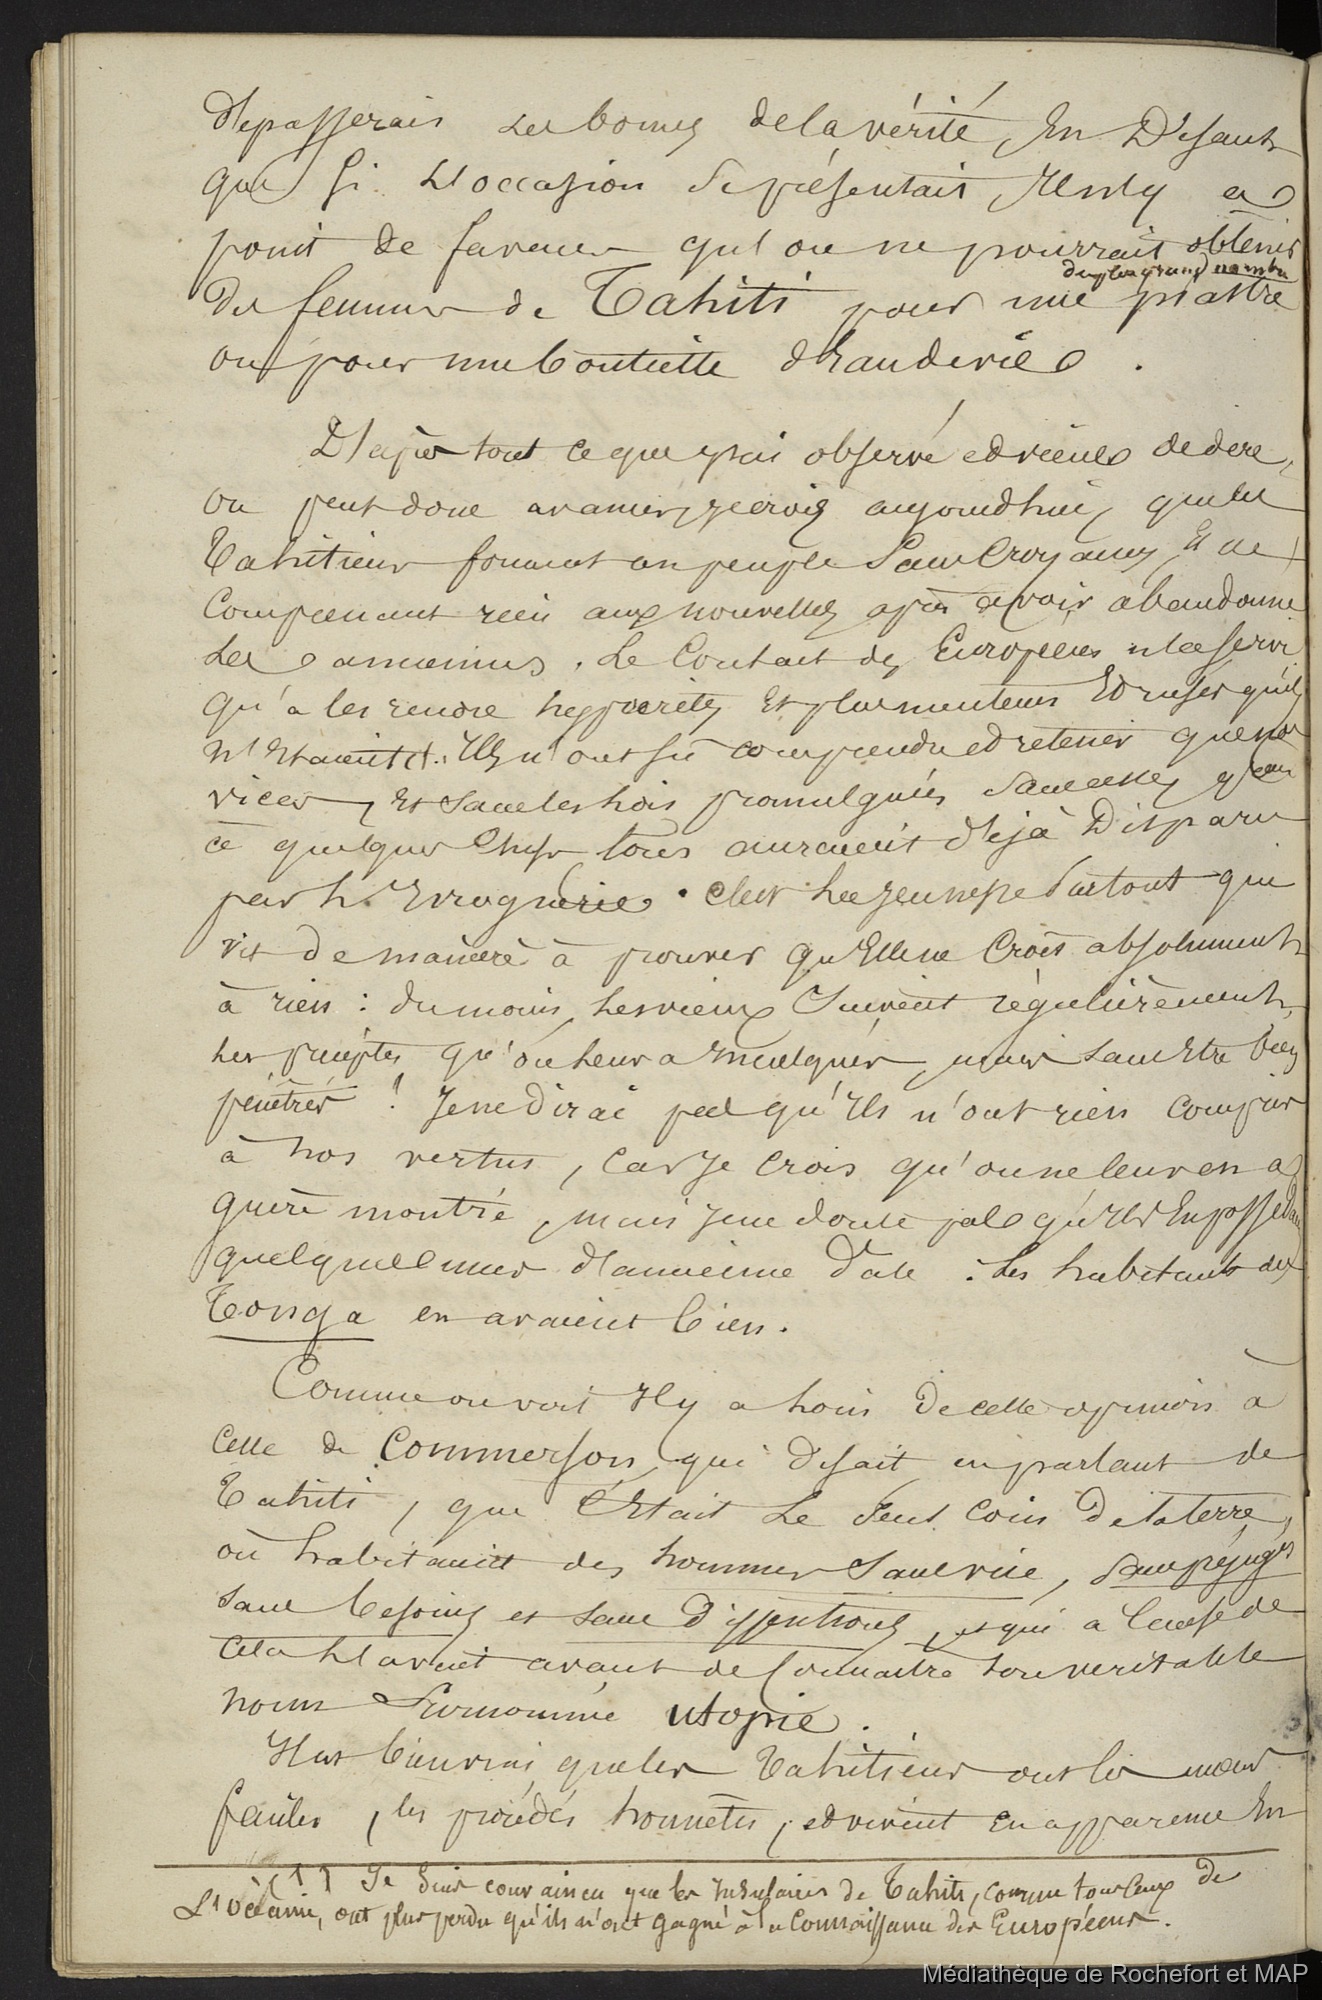 dépasserais les bornes de la vérité, En Disant
que si L'occasion se présentait, Il n'y a
point de faveur qu'on ne pourrait obtenir
du plus grand nombre
Des femmes de Tahiti pour une piastre
ou pour une bouteille d'Eau de vie.
D'après tout ce que j'ai observé et viens de dire,
on peut donc avancer, je crois aujourdhui, que les
Tahitiens forment un peuple sans Croyances, Et ne
Comprenant rien aux nouvelles après avoir abandonné
Les anciennes. Le Contact des Européens n'a servi
qu'à les rendre hypocrites Et plus menteurs Et rusés qu'ils
n'Etaient. Ils n'ont su comprendre et retenir que nos
vices, Et sans les lois promulguées
à quelques Chefs tous auraient déjà Disparu
par l'Ivrognerie. c'est La Jeunesse surtout qui
vit de manière à prouver qu'Elle ne Croit absolument
à rien : du moins, les vieux Suivent régulièrement
les préceptes qu'on leur a inculqués, mais sans Etre bien
pénétrés ! Je ne dirai pas qu'Ils n'ont rien compris
à nos vertus, Car Je Crois qu'on ne leur en a
guère montré, mais Je ne doute pas qu'Ils En possédaient
quelques unes d'ancienne date. Les habitants des
Tonga en avaient bien.
Comme on voit Il y a loin de cette opinion à
Celle de Commerson, qui disait en parlant de
Tahiti, que C'Etait Le Seul Coin De la terre,
où habitaient des hommes Sans vice, sans préjugés
sans besoins et sans dissentions, et qui à Cause de
cela L'avait avant de Connaitre son veritable
nom Surnommée utopie.
Il est bien vrai que les Tahitiens ont les mœurs
faciles, les procédés honnêtes, et vivent En apparence En
(1) Je suis convaincu que les Insulaires de Tahiti, comme tous ceux de
L'Océanie, ont plus perdu qu'ils n'ont gagné à la Connaissance des Européens.
Médiathèque de Rochefort et MAP